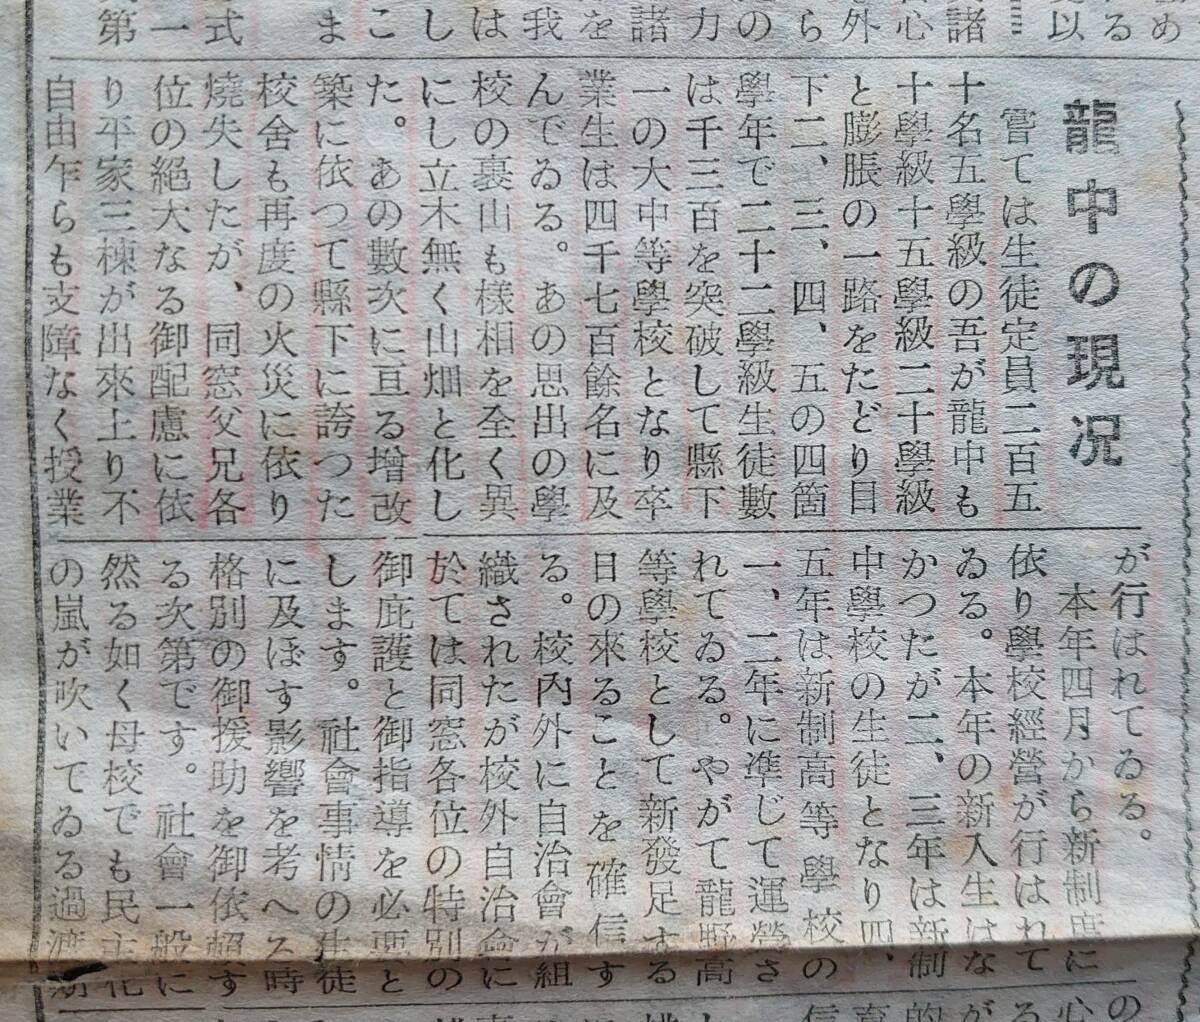 め
る
以
諸
心
外
ら
の
力
諸
を
我
は
し
こ
ま
式
一
第
龍中の現況
嘗ては生徒定員二百五
十名五學級の吾が龍中も
十學級十五學級二十學級
と膨脹の一路をたどり目
下二、三、四、五の四箇
學年で二十二學級生徒數
は千三百を突破して縣下
一の大中等學校となり卒
業生は四千七百餘名に及
んでゐる。あの思出の學
校の裏山も樣相を全く異
にし立木無く山畑と化し
た。あの數次に亘る增改
築に依つて縣下に誇つた
校舍も再度の火災に依り
燒失したが、同窓父兄各
位の絕大なる御配慮に依
り平家三棟が出來上り不
自由乍らも支障なく授業
が行はれてゐる。
本年四月から新制度に
依り學校經營が行はれて
ゐる。本年の新入生はな
かつたが二、三年は新制
中學校の生徒となり四、
五年は新制高等學校の
一、二年に準じて運營さ
れてゐる。やがて龍野高
等學校として新發足する
日の來ることを確信す
る。校內外に自治會が組
織されたが校外自治會に
於ては同窓各位の特別の
御庇護と御指導を必要と
します。社會事情の生徒
に及ぼす影響を考へる時
格別の御援助を御依賴す
る次第です。社會一般に
然る如く母校でも民主化
の嵐が吹いてゐる過渡期
の
心
る
が
的
信